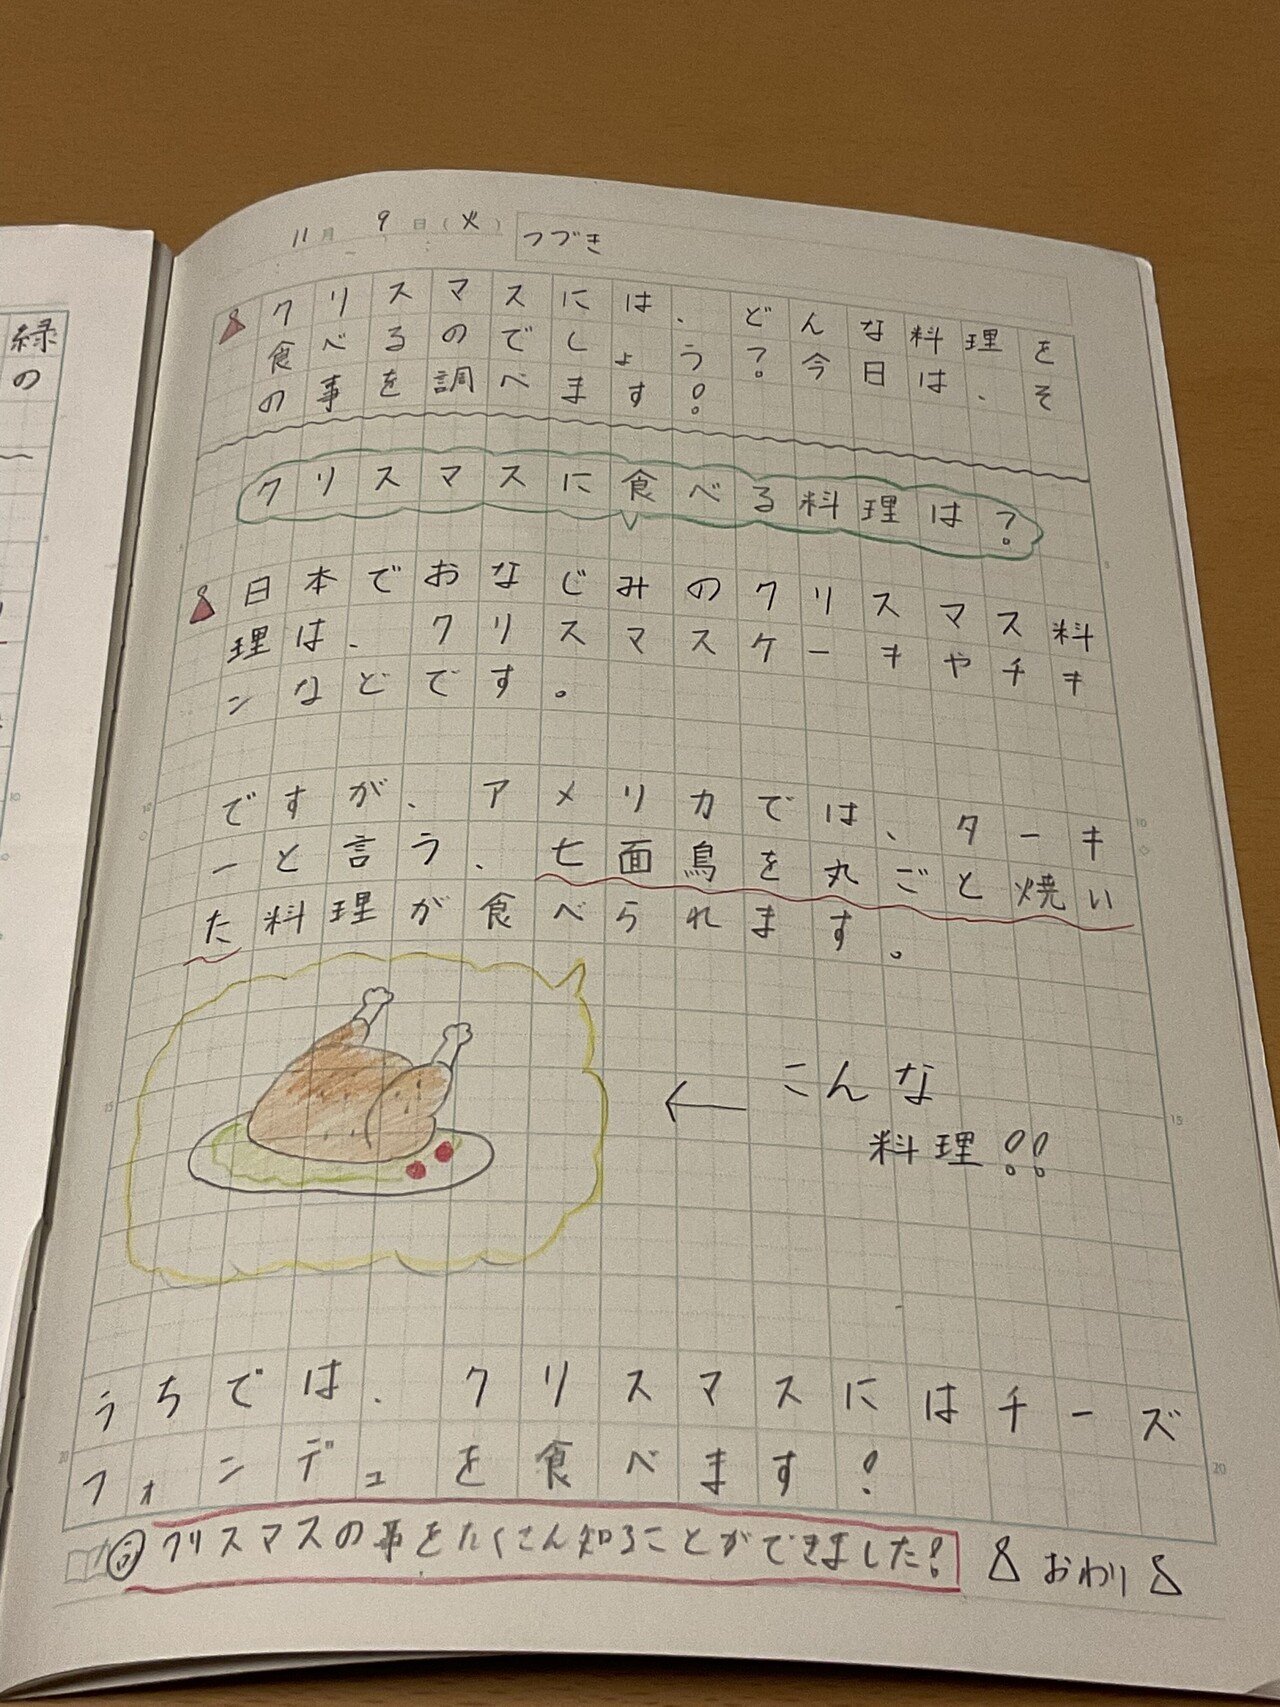 緑
の
11月 9日(火) つづき
クリスマスには、どんな料理を
食べるのでしょう?今日は、そ
の事を調べます!
クリスマスに食べる料理は?
日本でおなじみのクリスマス料
理は、クリスマスケーキやチキ
ンなどです。
ですが、アメリカでは、ターキ
ーと言う、七面鳥を丸ごと焼い
た料理が食べられます。
←こんな
料理!!
うちでは、クリスマスにはチーズ
フォンデュを食べます!
クリスマスの事をたくさん知ることができました! おわり
5
10
15
20
5
10
15
20